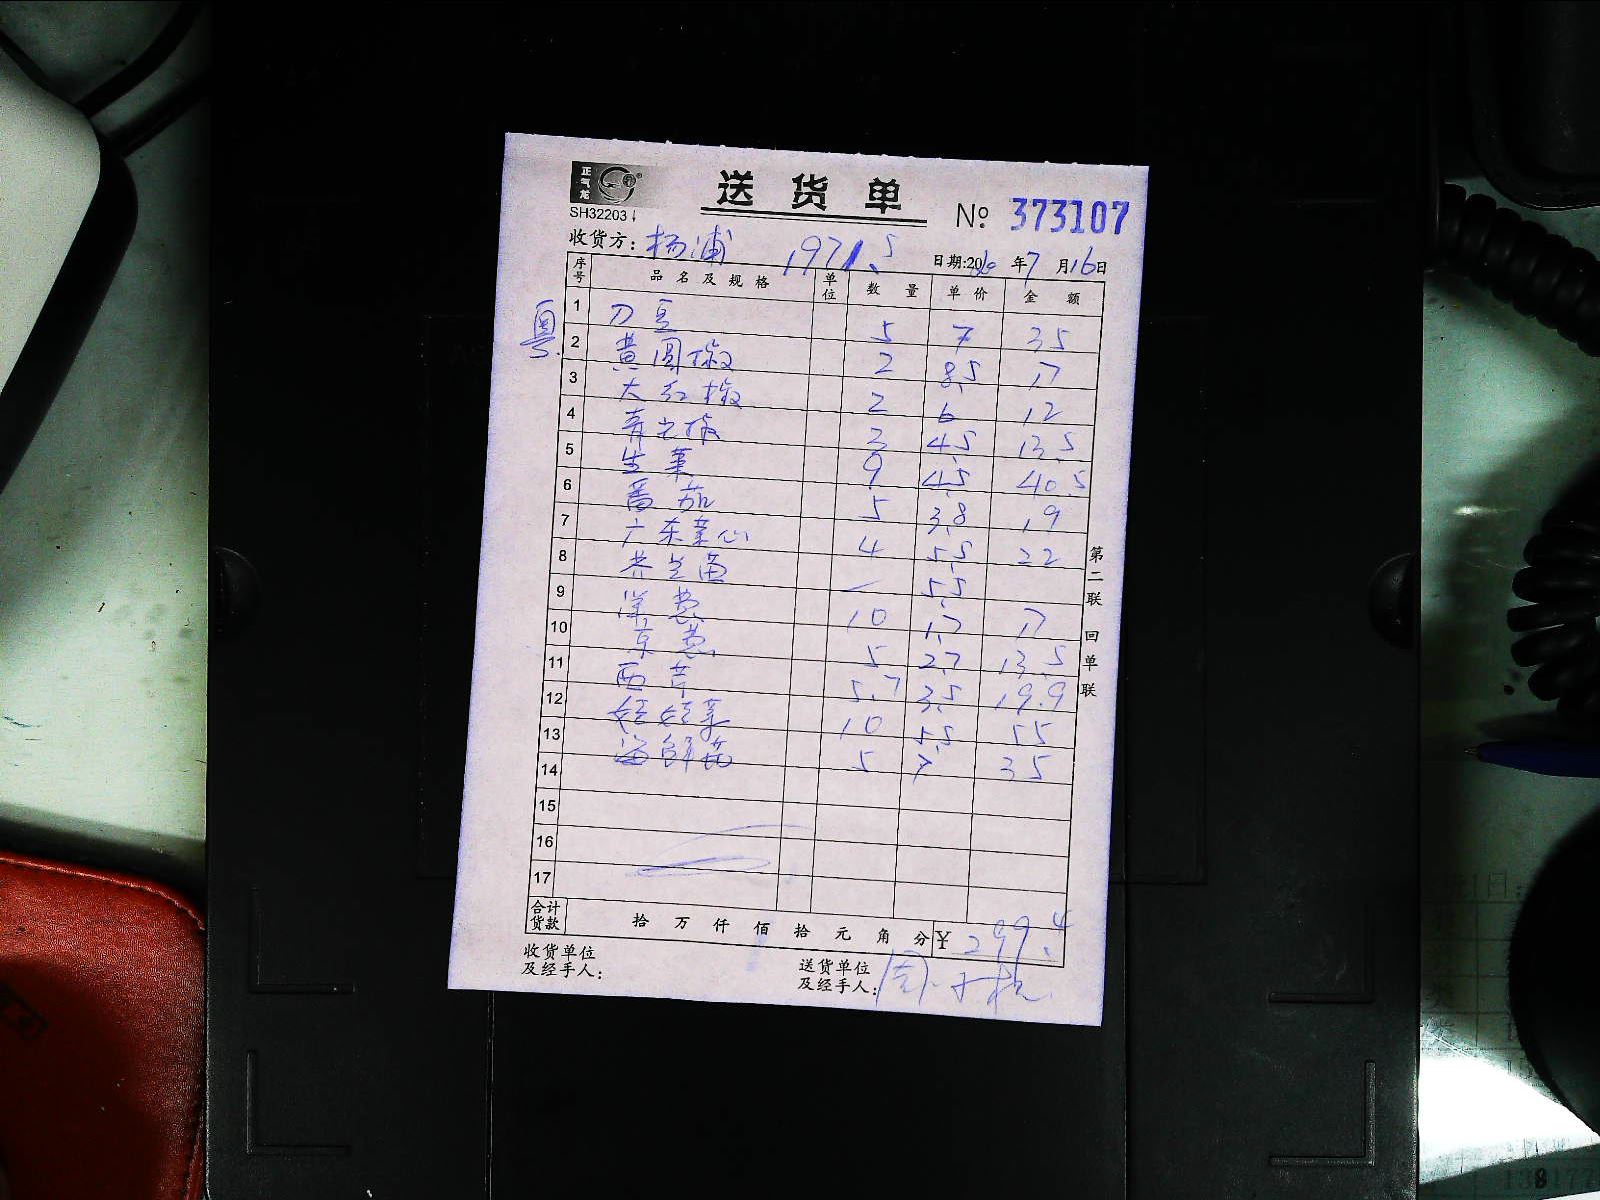 正气龙
送货单
SH32203
№ 373107
收货方: 杨浦 1971.5 日期:20 年7月16日
序号 品名及规格 单位 数量 单价 金额
粤
1 刀豆 5 7 35
2 黄圆椒 2 8.5 17
3 大红椒 2 6 12
4 青尖椒 3 4.5 13.5
5 生菜 9 4.5 40.5
6 番茄 5 3.8 19
7 广东菜心 4 5.5 22
8 芥兰苗 — 5.5
9 洋葱 10 1.7 17
10 京葱 5 2.7 13.5
11 西芹 5.7 3.5 19.9
12 娃娃菜 10 5.5 55
13 海鲜菇 5 7 35
14
15
16
17
第二联 回单联
合计货款 拾 万 仟 佰 拾 元 角 分 ¥ 299.4
收货单位及经手人:
送货单位及经手人:
138177